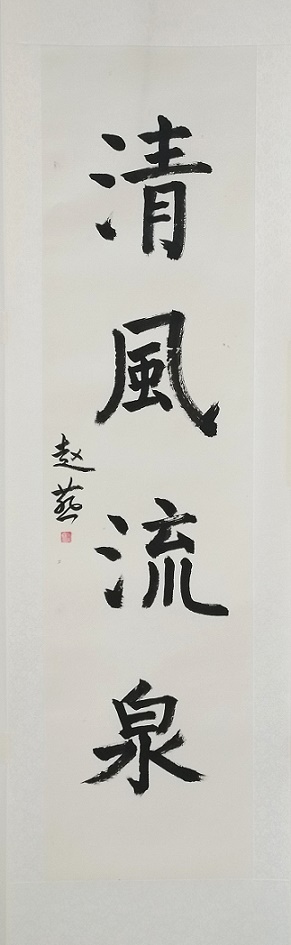 清風流泉
赵燕